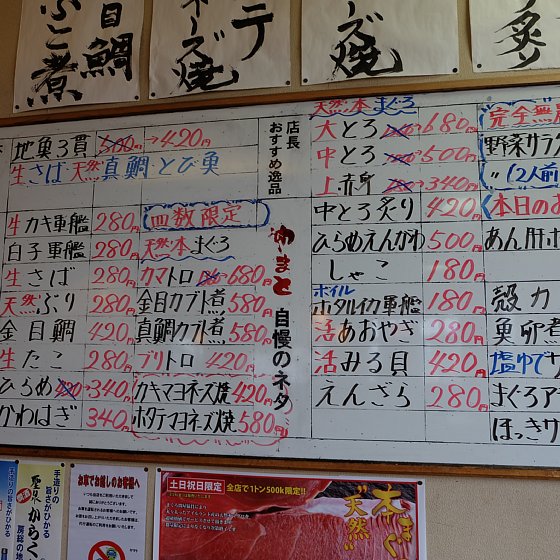 目鯛
ぶこ煮
テ
ネーズ焼
ーズ焼
炙り
地魚3貫 500→420円
生さば 天然真鯛 とび魚
生カキ軍艦 280円
白子軍艦 280円
生さば 280円
天然ぶり 280円
金目鯛 420円
生たこ 280円
ひらめ 420→340円
かわはぎ 340円
皿数限定
天然本まぐろ
カマトロ 680円
金目カブト煮 580円
真鯛カブト煮 580円
ブリトロ 420円
カキマヨネーズ焼 420円
ホタテマヨネーズ焼 580円
店長
おすすめ逸品
やまと 自慢のネタ
天然本まぐろ
大とろ 680円
中とろ 500円
上赤身 340円
中とろ炙り 420円
ひらめえんがわ 500円
しゃこ 180円
ボイル
ホタルイカ軍艦 180円
活あおやぎ 280円
活みる貝 420円
えんざら 280円
完全無
野菜サラ
〃(2人前
本日のお
あん肝ポ
殻カ
魚卵煮
塩ゆで
まぐろア
ほっき
手造りの
旨さがひかる
からく
房総の地
お車でお越しのお客様へ
土日祝日限定
全店で1トン500k限定!!
本まぐ
"天然"